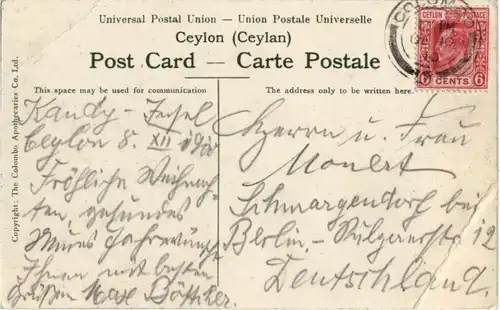 Universal Postal Union - Union Postale Universelle
Ceylon (Ceylan)
Post Card — Carte Postale
This space may be used for communication
The address only to be written here.
Copyright: The Colombo Apothecaries Co. Ltd.
Kandy - Insel
Ceylon 8. XII
Fröhliche Weihnach-
ten, gesundes
Neues Jahr wünscht
Ihnen mit besten
Grüßen Max Böttcher.
CEYLON POSTAGE
6 CENTS 6
COLOMBO
Herrn u. Frau
Schmargendorf bei
Berlin - Sulzaerstr 12
Deutschland.